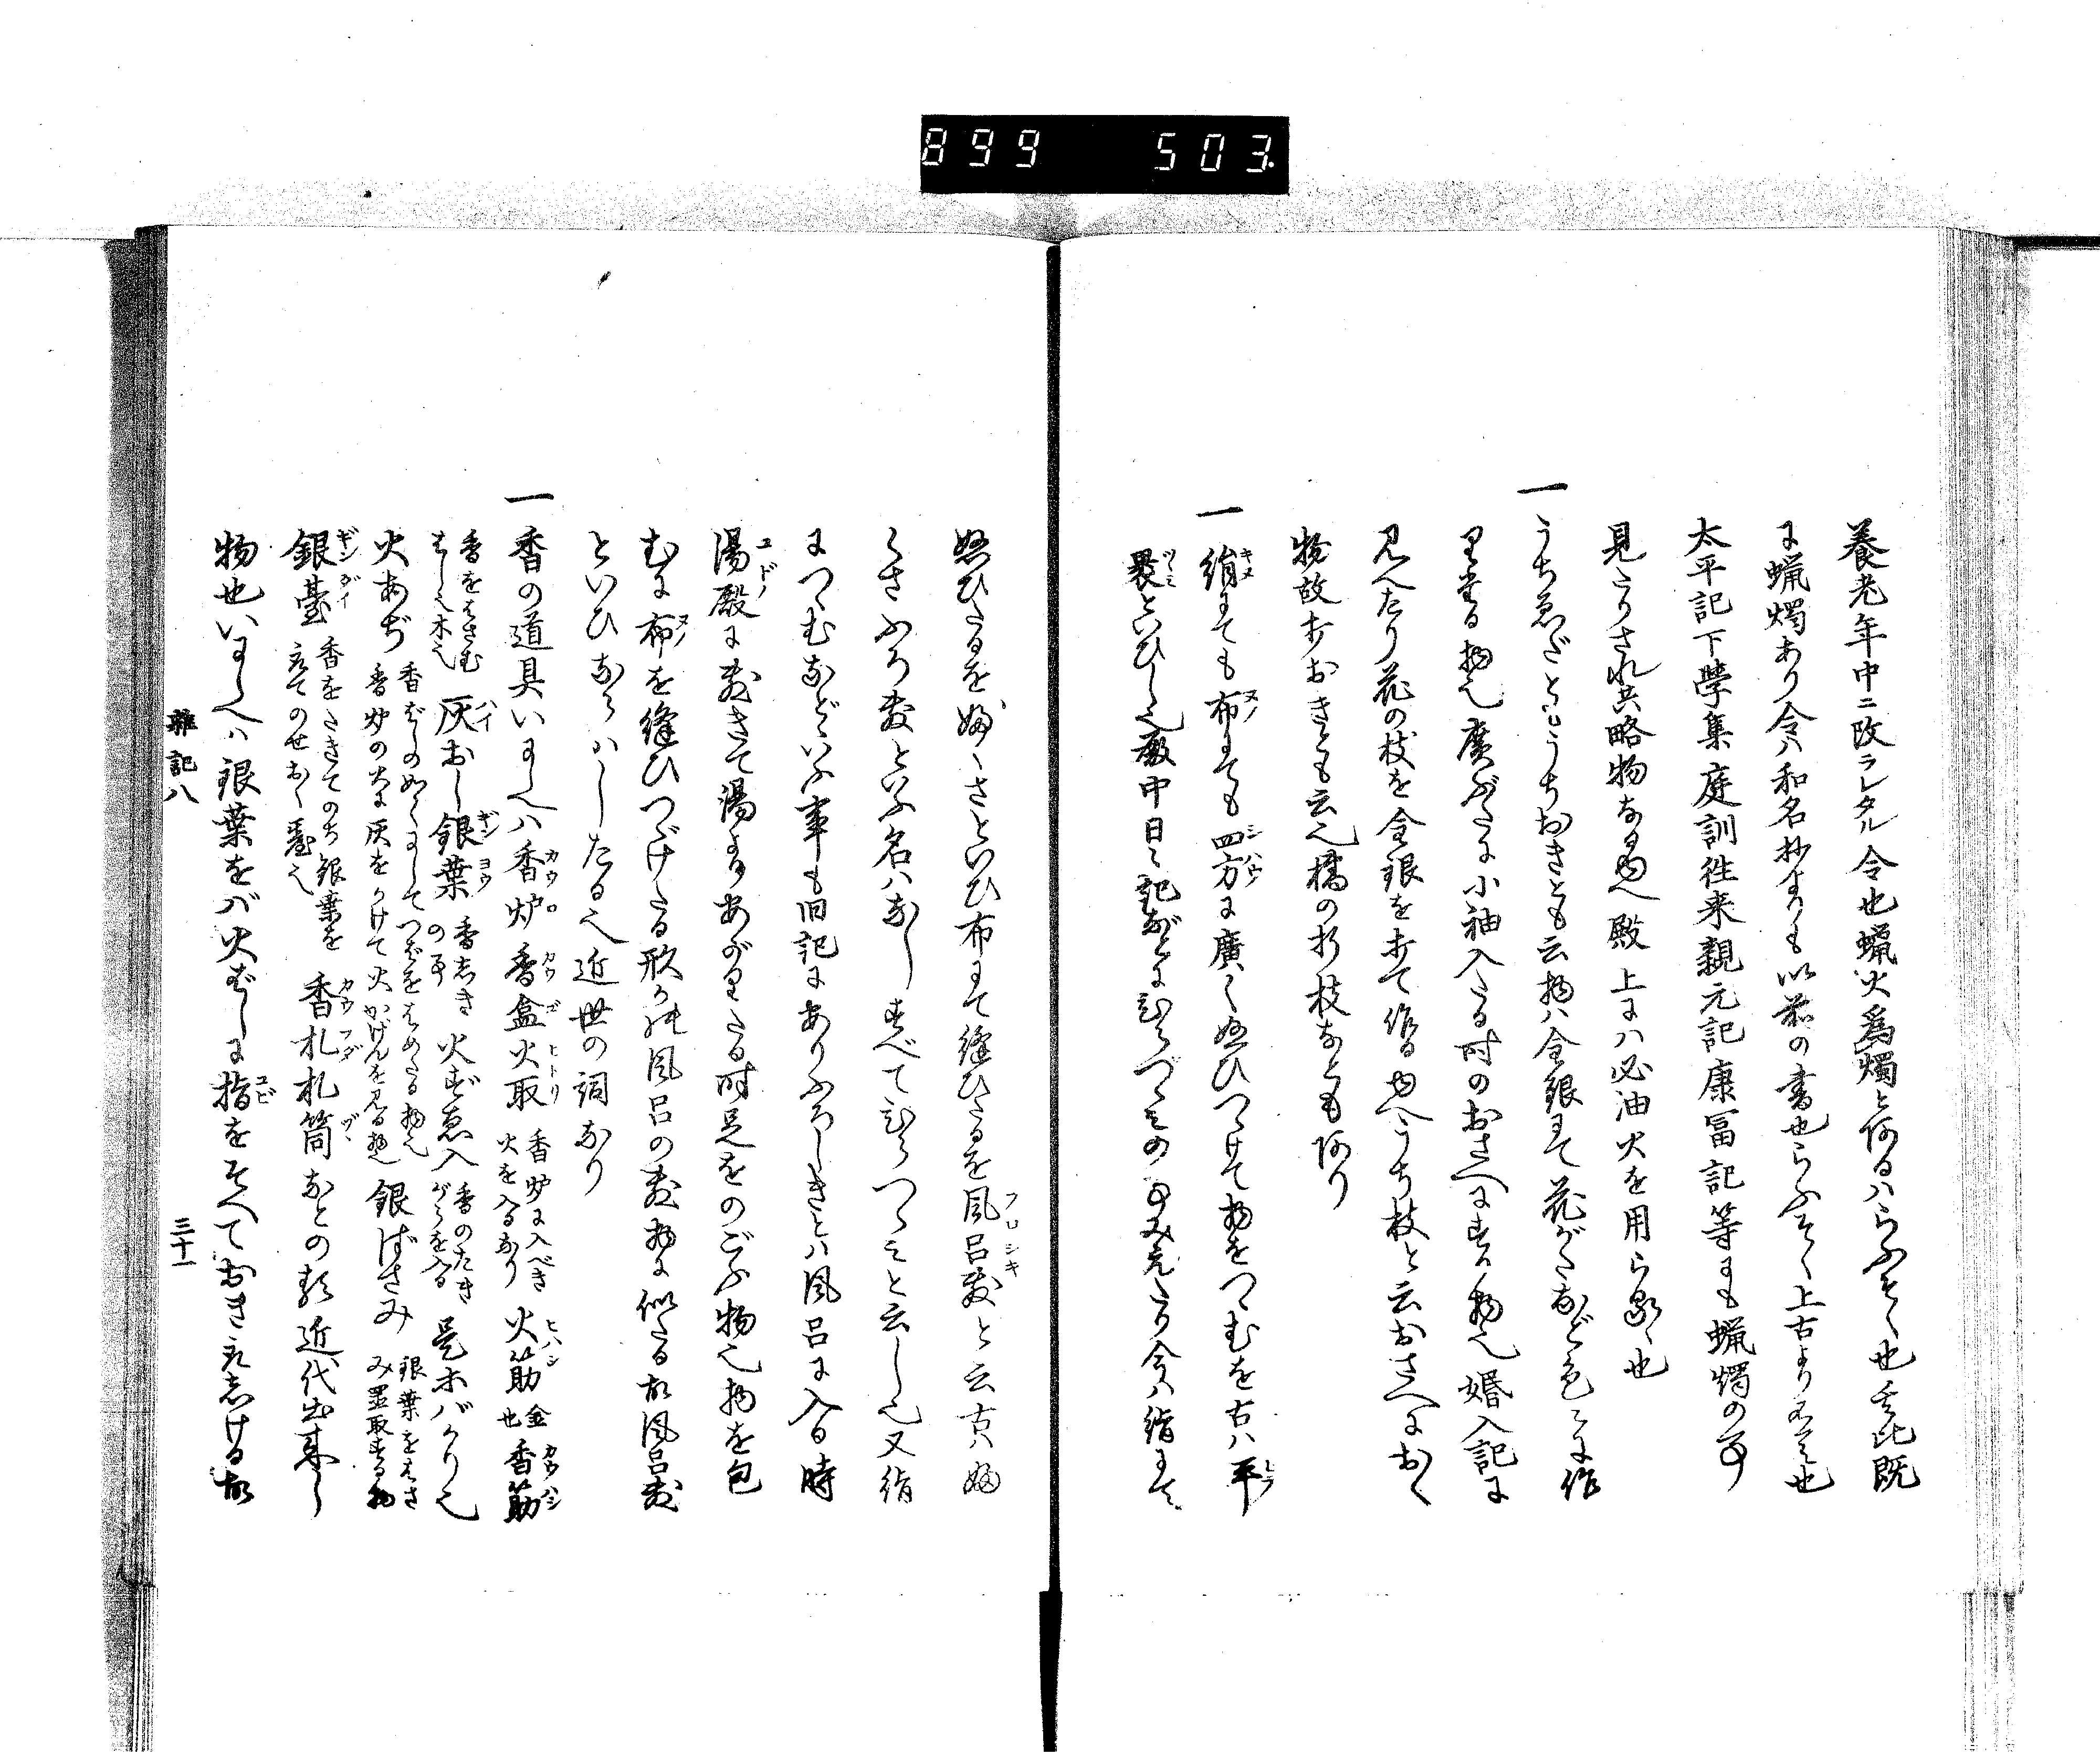 899 503
養老年中ニ改ラレタル令也蝋火為燭と何るハらふそく也其比既
に蝋燭あり令ハ和名抄よりも以前の書也らふそく上古より有之也
太平記下學集庭訓往来親元記康冨記等にも蝋燭の事
見えりされ共略物なる故殿上にハ必油火を用らるゝ也
一うちゑだとはうちおきとも云物ハ金銀にて花がたなど色々に作
りたる物也廣ぶたに小袖入たる時のおさへにする物也婚入記に
見へたり花の枝を金銀を打て作る故うち枝と云おさへにおく
物故打おきとも云也橘の折枝なとも何り
一絹にても布にても四方に廣く縫ひつけて物をつゝむを古ハ平
裹といひし也殿中日々記などにひらづゝみの事みえたり今ハ絹にて
縫ひたるをふくさといひ布にて縫ひたるを風呂敷と云古ハふ
くさふろ敷といふ名ハなしすべてひらつゝみと云し也又絹
につゝむなどいふ事も旧記にありふろしきとハ風呂に入る時
湯殿に敷きて湯よりあがりたる時足をのごふ物也物を包
むに布を縫ひつゞけたる形が彼風呂の敷物に似たる故風呂敷
といひならハしたる也近世の詞なり
一香の道具いにしへハ香炉香盒火取 香炉に入べき火を入るなり 火筯 金也 香筯
香をはさむはし也木也 灰おし銀葉 香しきの事 火ずゑ入 香のたきがらを入る 是ホバかり也
火あぢ 香ばしの如くにして香炉の大に灰をかけて火かげんを見る物也 銀ばさみ 銀葉をはさみ置取する物
銀臺 香をたきてのち銀葉を立てのせおく臺也 香札札筒などの類近代出来し
物也いにしへハ銀葉をバ火ばしに指をそへておき立しける故
雜記八
三十一